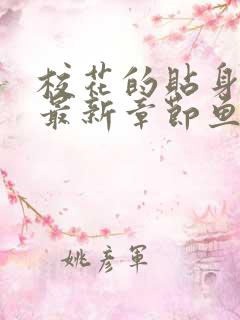 校花的贴身
最新章节鱼
姚彦军